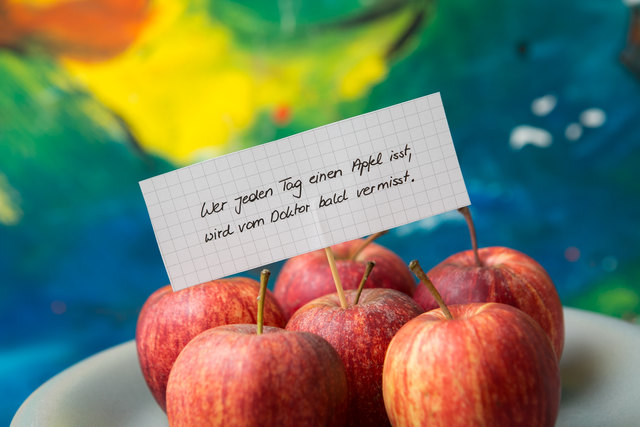 Wer jeden Tag einen Apfel isst,
wird vom Doktor bald vermisst.